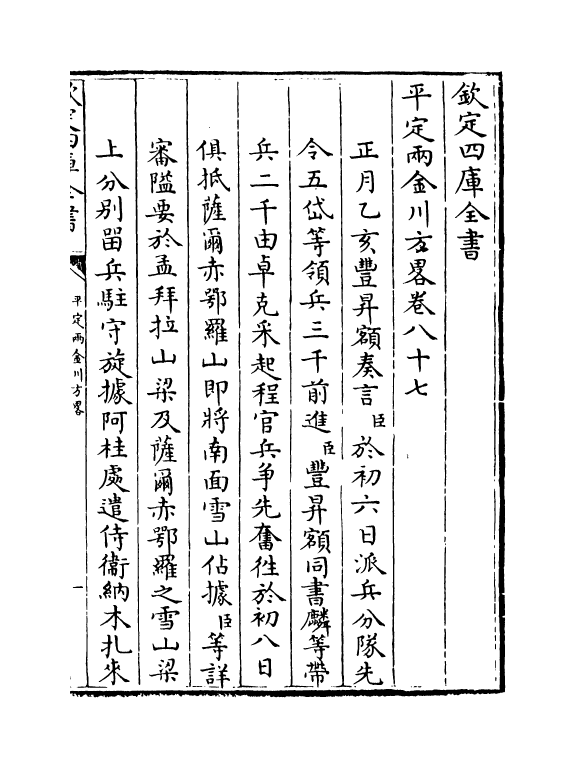 欽定四庫全書
平定兩金川方畧卷八十七
正月乙亥豐昇額奏言臣於初六日派兵分隊先
令五岱等領兵三千前進臣豐昇額同書麟等帶
兵二千由卓克采起程官兵爭先奮徃於初八日
俱抵薩爾赤鄂羅山即將南面雪山佔據臣等詳
審隘要於孟拜拉山梁及薩爾赤鄂羅之雪山梁
上分别留兵駐守旋據阿桂處遣侍衞納木扎來
欽定四庫全書
平定兩金川方畧
一